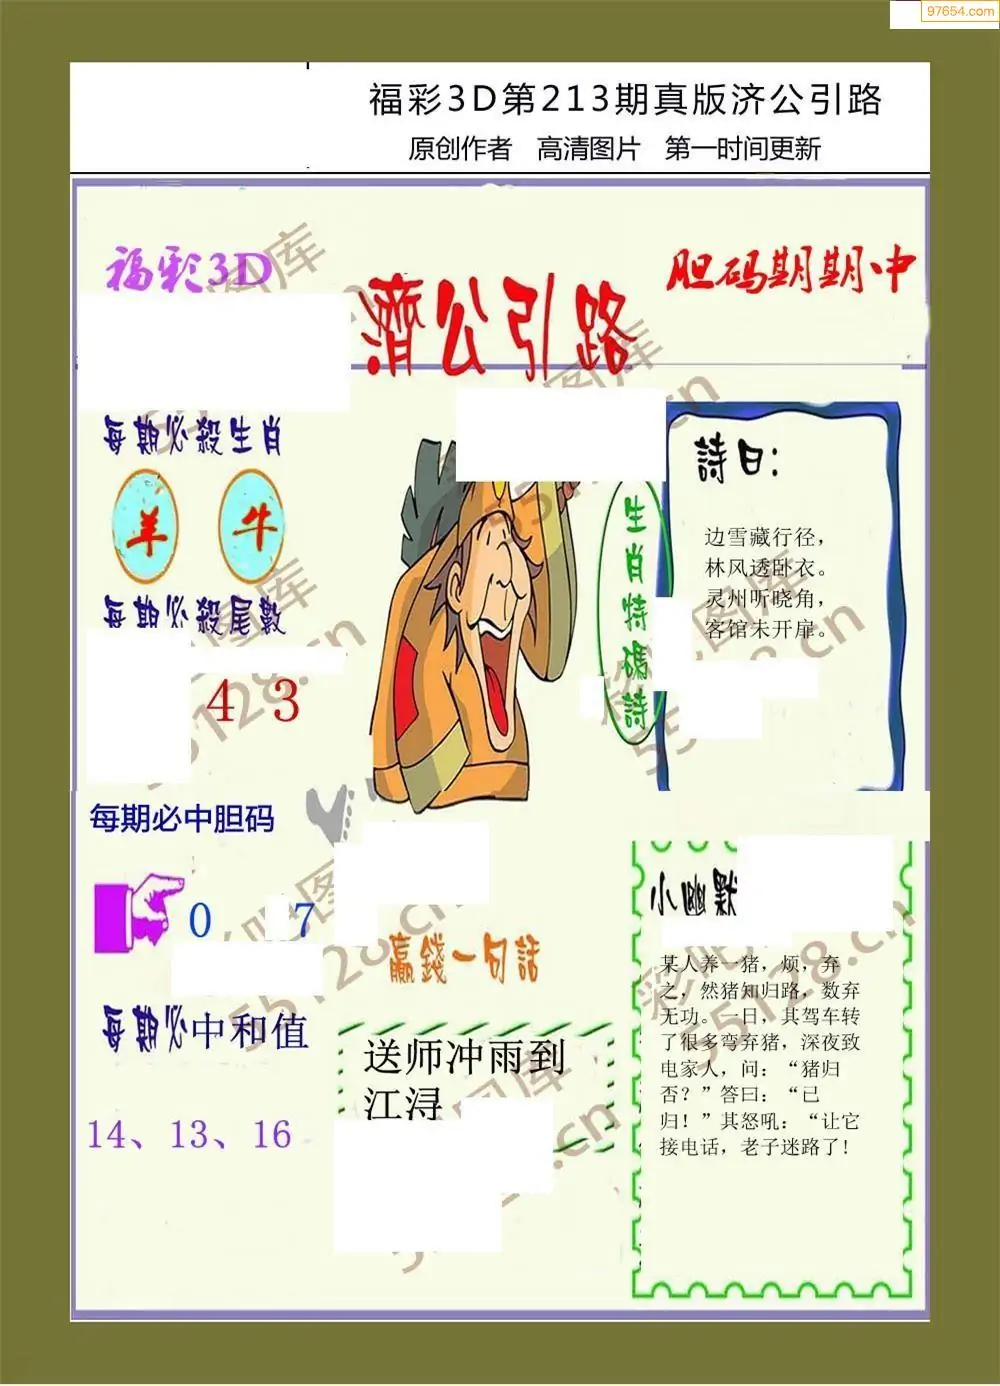 97654.com
福彩3D第213期真版济公引路
原创作者 高清图片 第一时间更新
福彩3D
濟公引路
胆码期期中
每期必殺生肖
羊 牛
每期必殺尾數
4 3
每期必中胆码
0 7
每期必中和值
14、13、16
生肖特碼詩
詩曰:
边雪藏行径，
林风透卧衣。
灵州听晓角，
客馆未开扉。
赢錢一句話
送师冲雨到
江浔
小幽默
某人养一猪，烦，弃
之，然猪知归路，数弃
无功。一日，其驾车转
了很多弯弃猪，深夜致
电家人，问：“猪归
否？”答曰：“已
归！”其怒吼：“让它
接电话，老子迷路了!
彩吧图库
55128.cn